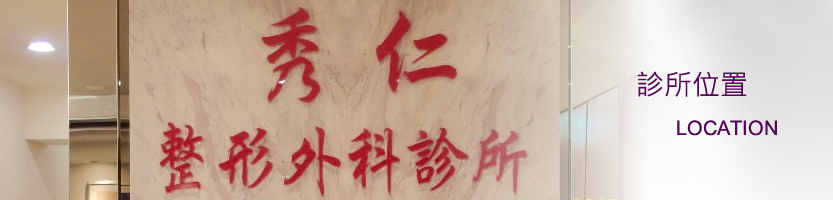 秀仁
整形外科診所
診所位置
LOCATION